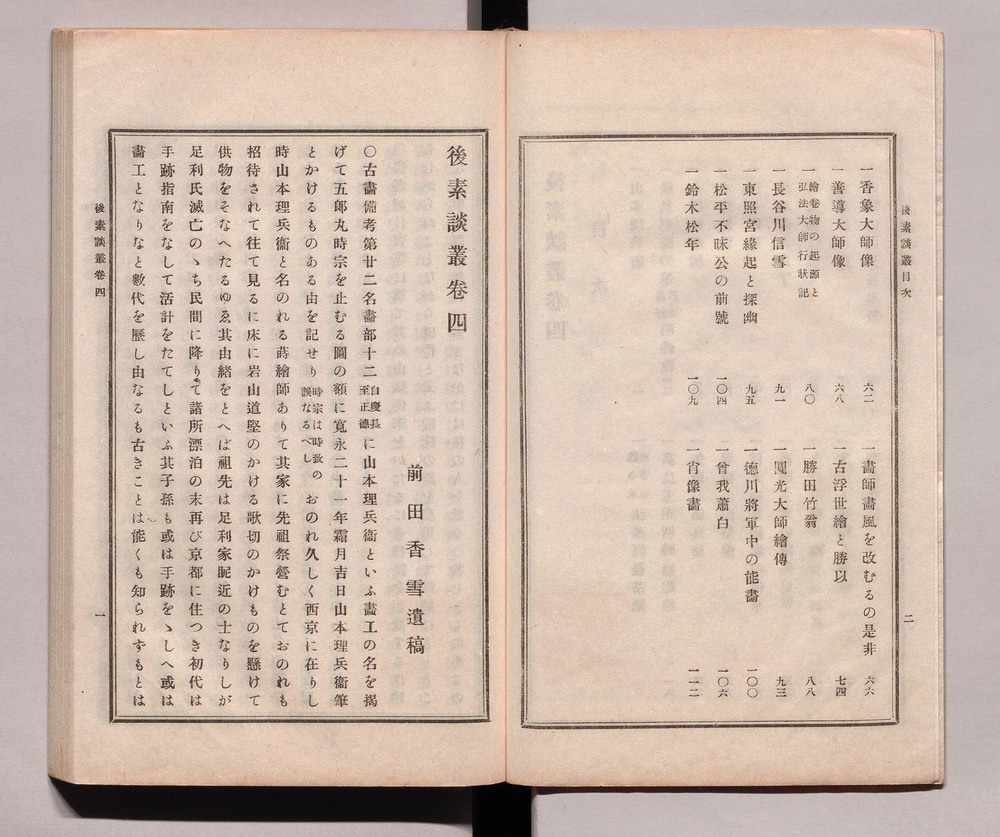 後素談叢目次
一香象大師像 六二
一善導大師像 六八
一繪卷物の起源と弘法大師行狀記 八〇
一長谷川信雪 九一
一東照宮緣起と探幽 九五
一松平不昧公の前號 一〇四
一鈴木松年 一〇九
一畵師畵風を改むるの是非 六六
一古浮世繪と勝以 七四
一勝田竹翁 八八
一圓光大師繪傳 九三
一德川將軍中の能畵 一〇〇
一曾我蕭白 一〇六
一肖像畵 一一二
二
後素談叢卷四
前田香雪遺稿
〇古畵備考第廿二名畵部十二自慶長至正德に山本理兵衞といふ畵工の名を揭
げて五郎丸時宗を止むる圖の額に寬永二十一年霜月吉日山本理兵衞筆
とかけるものある由を記せり時宗は時致の誤なるべしおのれ久しく西京に在りし
時山本理兵衞と名のれる蒔繪師ありて其家に先祖祭營むとておのれも
招待されて往て見るに床に岩山道堅のかける歌切のかけものを懸けて
供物をそなへたるゆゑ其由緒をとへば祖先は足利家眤近の士なりしが
足利氏滅亡のゝち民間に降りて諸所漂泊の末再び京都に住つき初代は
手跡指南をなして活計をたてしといふ其子孫も或は手跡をゝしへ或は
畵工となりなと數代を歷し由なるも古きことは能くも知られずもとは
後素談叢卷四
一